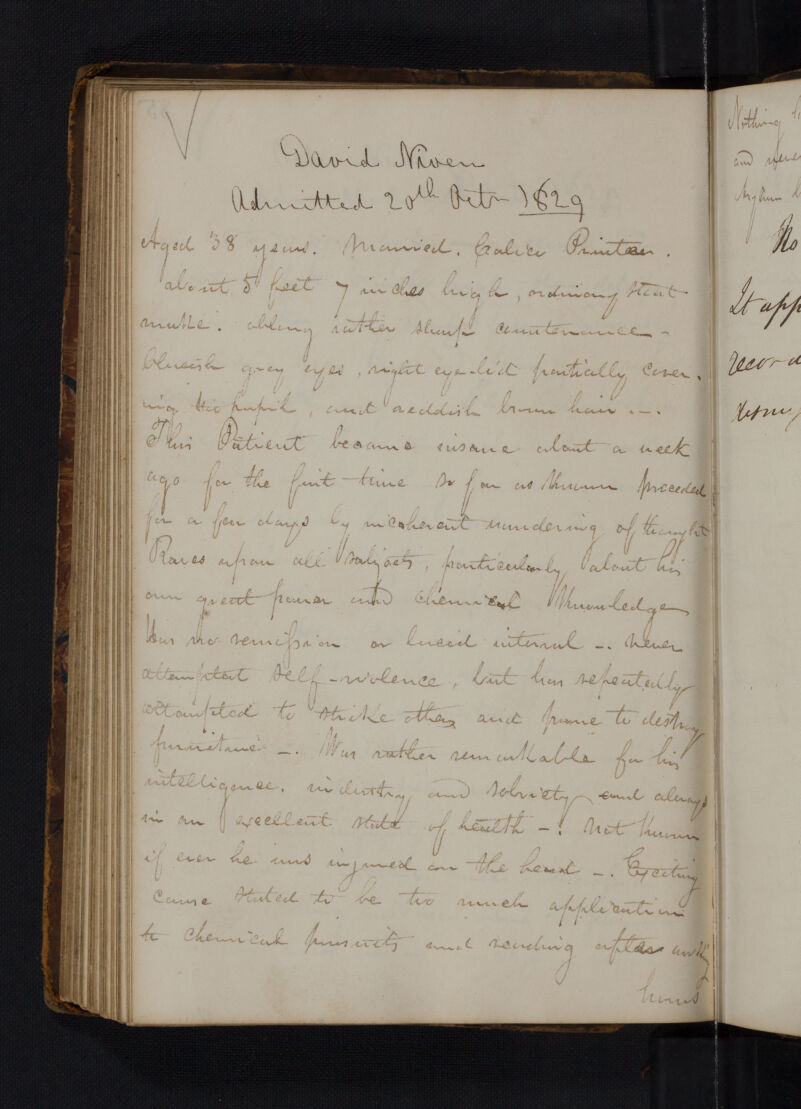 David Niven
Admitted 20th Octr 1829
Aged 38 years. Married. Calico Printer.
about 5 feet 7 inches high, ordinary stout
make. oblong rather sharp countenance -
blueish grey eyes, right eye-lid partially cover.
ing the pupil, and reddish brown hair. -.
This Patient became insane about a week
ago for the first time so far as known preceded
for a few days by incoherent wandering of thought
Raves upon all subjects, particularly about his
own great power and chemical knowledge
Has no remission or lucid interval -. Never
attempted self-violence, but has repeatedly
attempted to strike others and prone to destroy
furniture -. Was rather remarkable for his
intelligence. industry and sobriety and always
in an excellent state of health -. Not known
if ever he was injured on the head -. Exciting
cause stated to be too much application
to chemical pursuits and reading after working
hours
Nothing
and never
Asylum
No
It app
record